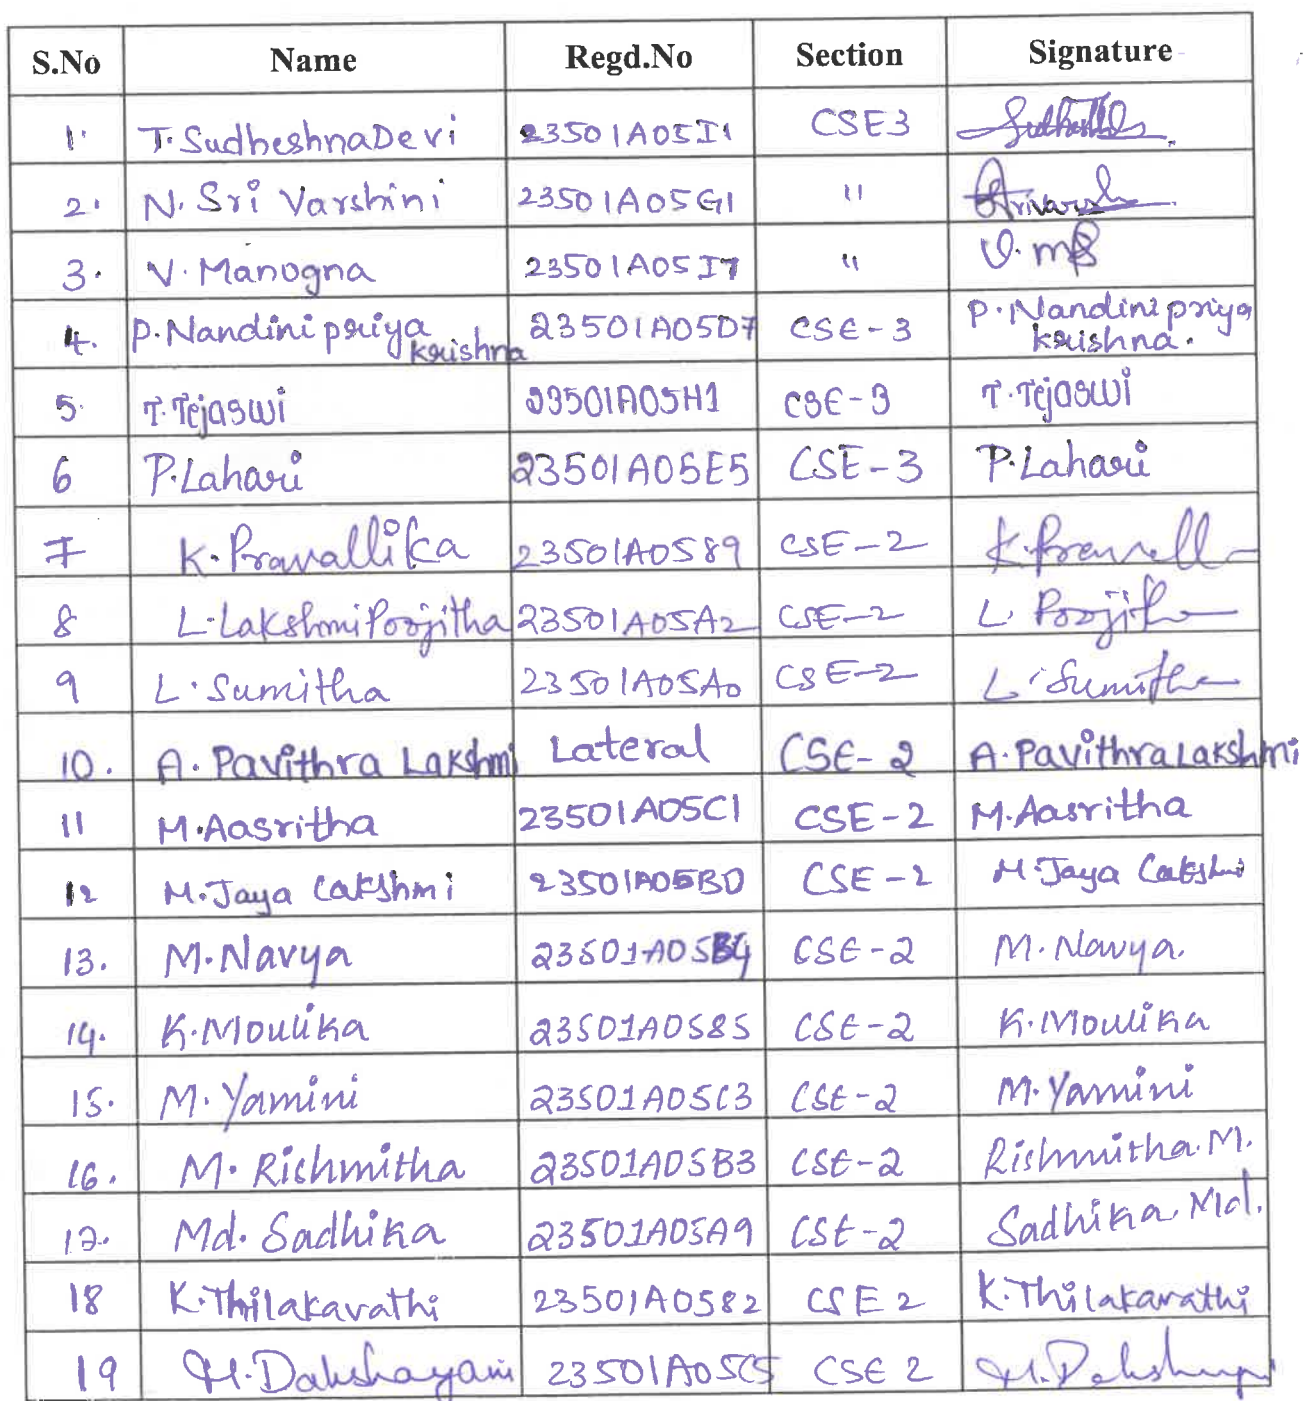 S.No Name Regd.No Section Signature
1. T. Sudheshna Devi 23501A05I1 CSE3
2. N. Sri Varshini 23501A05G1 " Srivarsh
3. V. Manogna 23501A05I7 " V.
4. P. Nandini priya krishna 23501A05D7 CSE-3 P. Nandini priya krishna.
5. T. Tejaswi 23501A05H1 CSE-3 T. Tejaswi
6 P. Lahari 23501A05E5 CSE-3 P. Lahari
7 K. Pravallika 23501A0589 CSE-2 K. Pravall
8 L. Lakshmi Poojitha 23501A05A2 CSE-2 L. Poojitha
9 L. Sumitha 23501A05A0 CSE-2 L. Sumitha
10. A. Pavithra Lakshmi Lateral CSE-2 A. Pavithra Lakshmi
11 M. Aasritha 23501A05C1 CSE-2 M. Aasritha
12 M. Jaya Lakshmi 23501A05B0 CSE-2 M. Jaya Lakshmi
13. M. Navya 23501A05B4 CSE-2 M. Navya.
14. K. Moulika 23501A0585 CSE-2 K. Moulika
15. M. Yamini 23501A05C3 CSE-2 M. Yamini
16. M. Rishmitha 23501A05B3 CSE-2 Rishmitha. M.
17. Md. Sadhika 23501A05A9 CSE-2 Sadhika. Md.
18 K. Thilakavathi 23501A0582 CSE 2 K. Thilakavathi
19 M. Dakshayani 23501A05C5 CSE 2